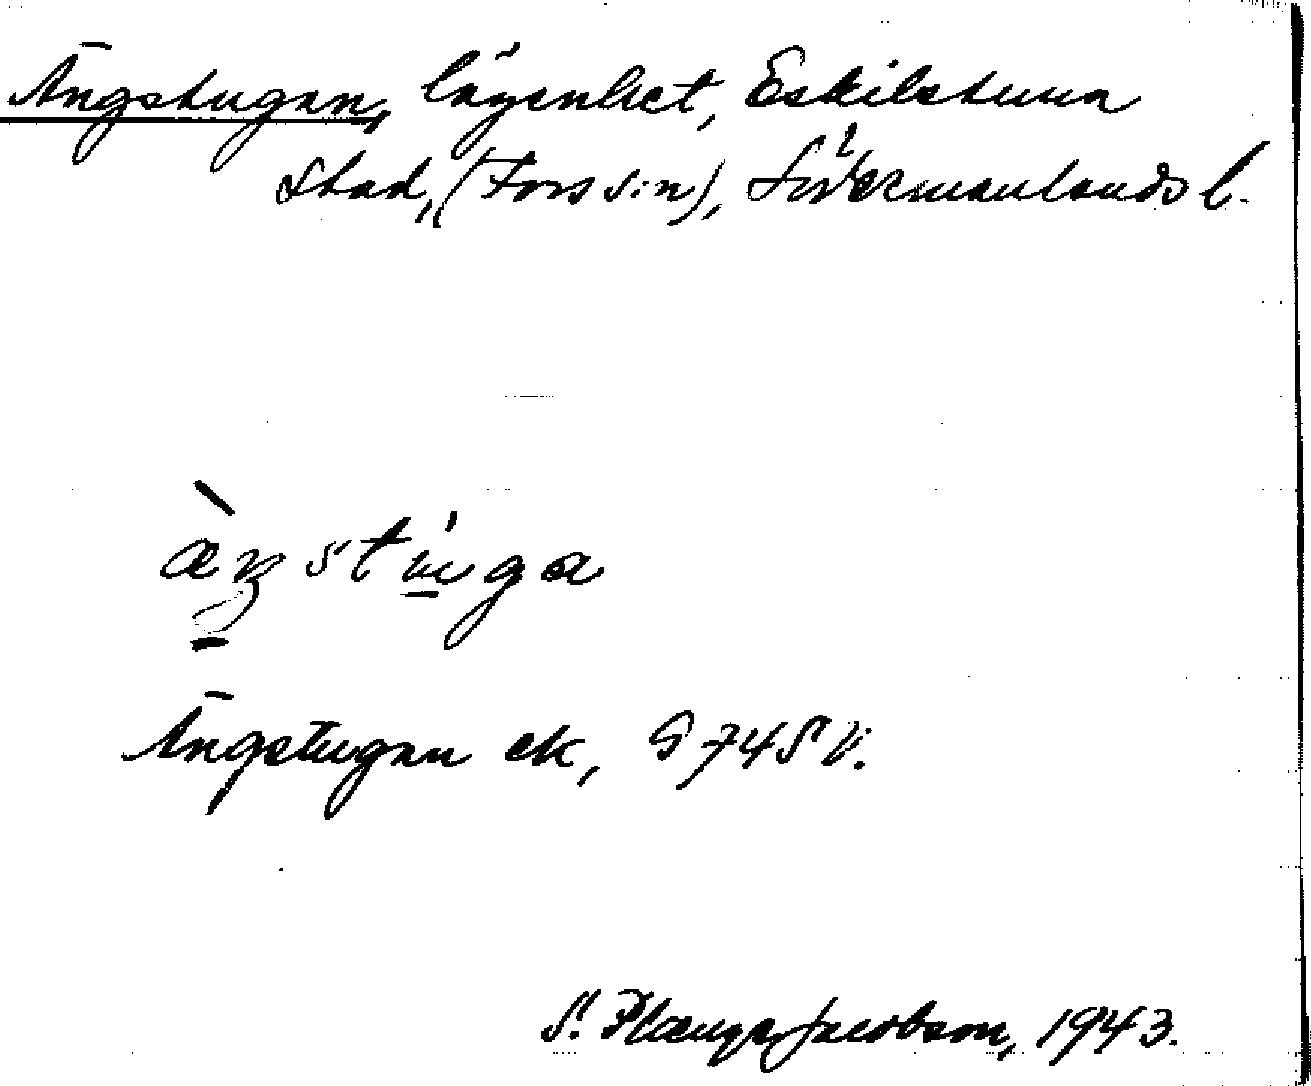 Ängstugan, lägenhet, Eskilstuna
stad, (Fors s:n), Södermanlands l.
ä̀ŋstu̱̍ga
Ängstugan ek, G 745 V.
S. Plænge Jacobson, 1943.